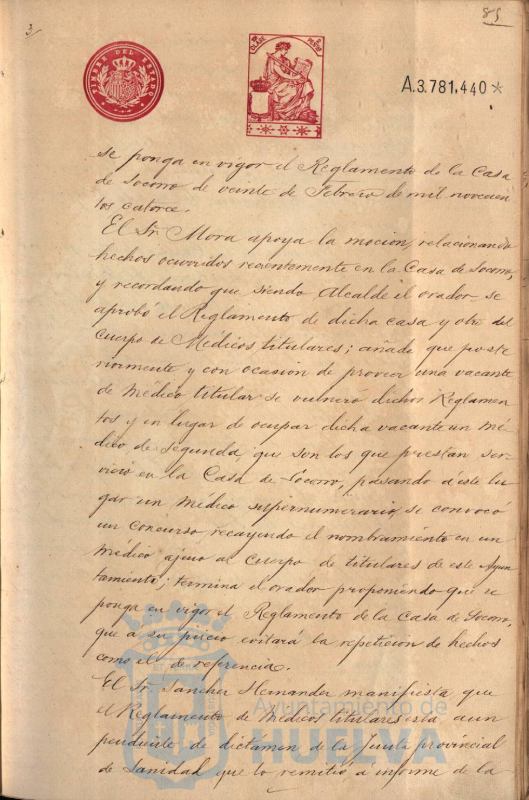 3
85
TIMBRE DEL ESTADO
A.3.781,440*
se ponga en vigor el Reglamento de la Casa
de Socorro de veinte de Febrero de mil novecien
tos catorce.
El Sr. Mora apoya la mocion, relacionando
hechos ocurridos recientemente en la Casa de Socorro,
y recordando que siendo Alcalde el orador se
aprobó el Reglamento de dicha casa y otro del
Cuerpo de Médicos titulares; añade que poste
riormente y con ocasion de proveer una vacante
de Médico titular se vulneró dichos Reglamen
tos y en lugar de ocupar dicha vacante un Mé
dico de segunda que son los que prestan ser
vicio en la Casa de Socorro, pasando á este lu
gar un médico supernumerario, se convocó
un Concurso, recayendo el nombramiento en un
Médico ajeno al Cuerpo de titulares de este Ayun
tamiento; termina el orador proponiendo que se
ponga en vigor el Reglamento de la Casa de Socorro,
que á su juicio evitará la repeticion de hechos
como el de referencia.
El Sr. Sanchez Hernandez manifiesta que
el Reglamento de Médicos titulares está aun
pendiente de dictamen de la Junta provincial
de Sanidad que lo remitió a informe de la
Ayuntamiento de
HUELVA